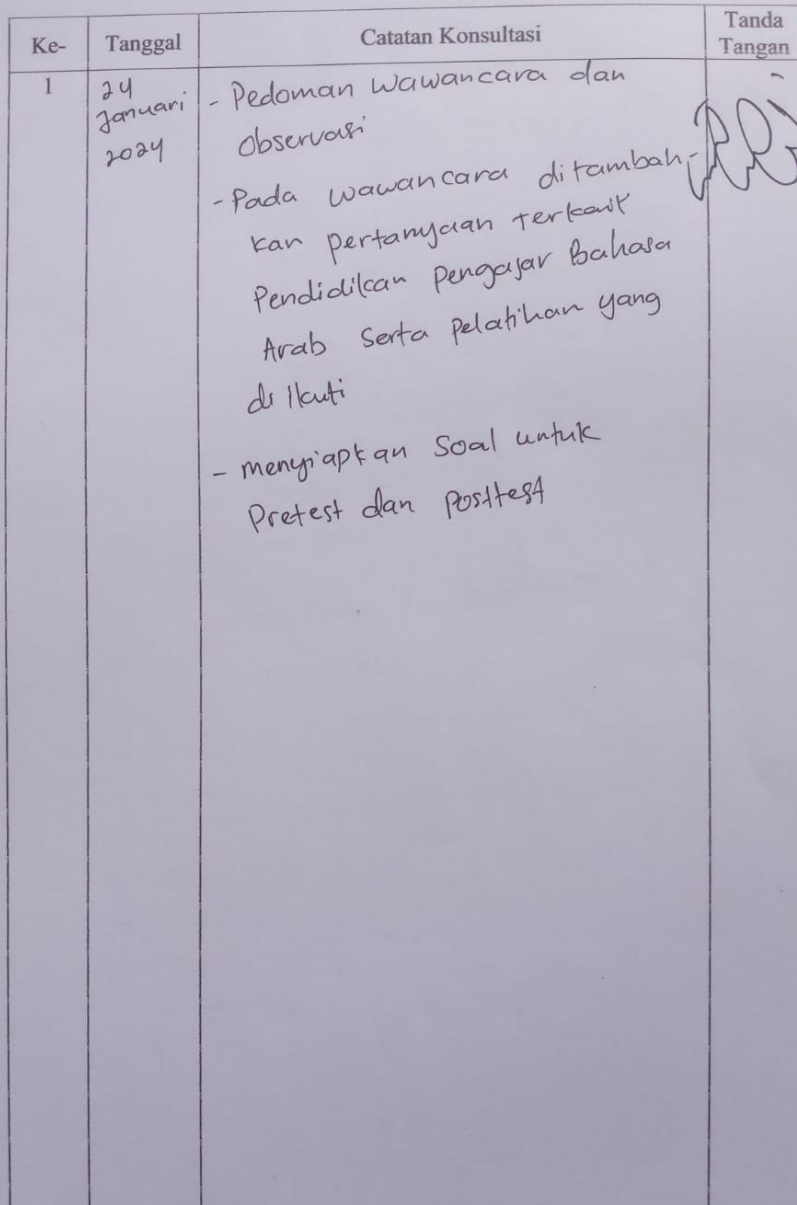 Ke- Tanggal Catatan Konsultasi Tanda Tangan
1
24
Januari
2024
- Pedoman wawancara dan
observasi
- Pada wawancara ditambah-
kan pertanyaan terkait
Pendidikan Pengajar Bahasa
Arab serta pelatihan yang
di ikuti
- menyiapkan Soal untuk
Pretest dan posttest